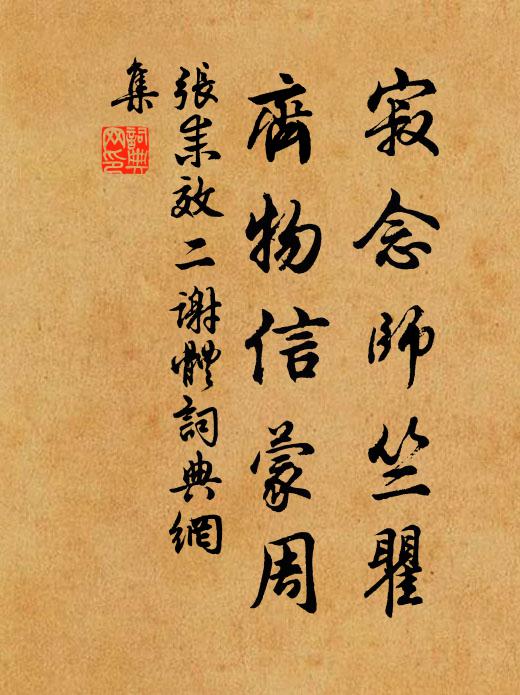 寂念師竺瞿
齊物信蒙周
張耒效二謝體詞典網
集
詞典網印